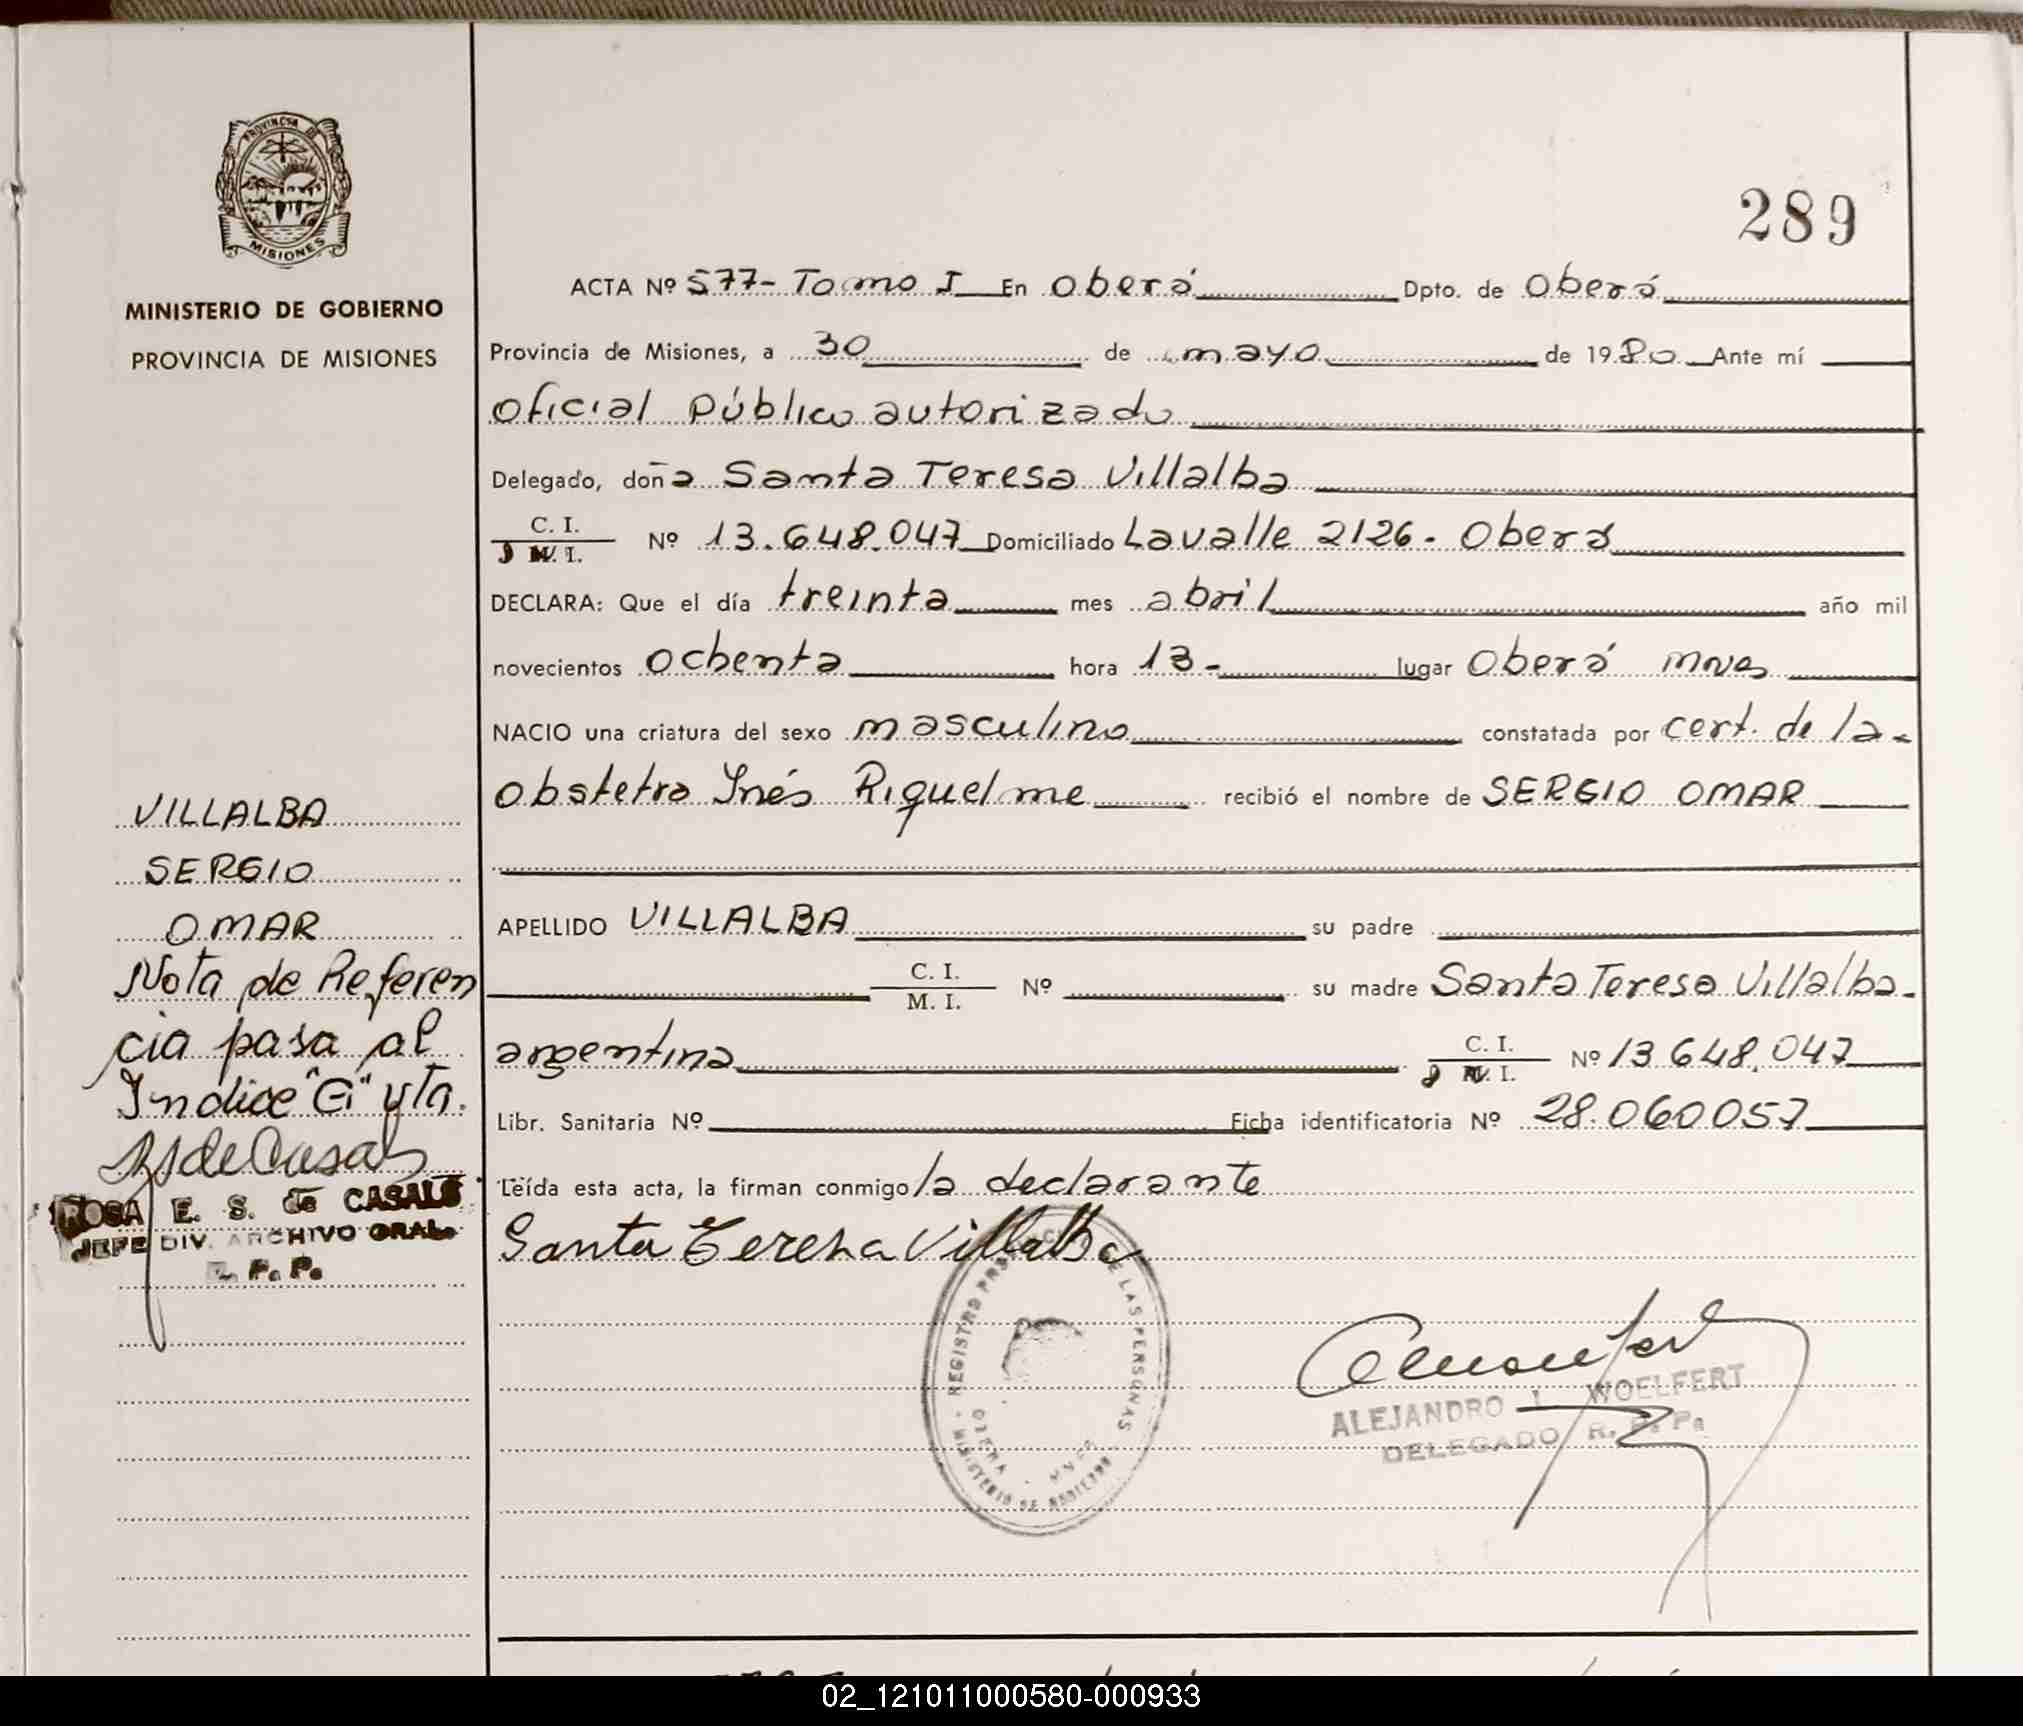 PROVINCIA DE
MISIONES
MINISTERIO DE GOBIERNO
PROVINCIA DE MISIONES
289
ACTA Nº 577- Tomo I En Oberá Dpto. de Oberá
Provincia de Misiones, a 30 de mayo de 1980. Ante mí
Oficial Público autorizado
Delegado, doña Santa Teresa Villalba
C. I.
M. I. Nº 13.648.047 Domiciliado Lavalle 2126. Oberá
DECLARA: Que el día treinta mes abril año mil
novecientos ochenta hora 13- lugar Oberá Mnes
NACIO una criatura del sexo masculino constatada por cert. de la
obstetra Inés Riquelme recibió el nombre de SERGIO OMAR
APELLIDO VILLALBA su padre
C. I.
M. I. Nº su madre Santa Teresa Villalba
argentina C. I.
M. I. Nº 13.648.047
Libr. Sanitaria Nº Ficha identificatoria Nº 28.060057
Leída esta acta, la firman conmigo la declarante
Santa Teresa Villalba
VILLALBA
SERGIO
OMAR
Nota de Referen
cia pasa al
Indice "G" yta.
ROSA E. S. de CASALS
JEFE DIV. ARCHIVO GRAL.
R. P. P.
REGISTRO DE LAS PERSONAS
MINISTERIO DE GOBIERNO
OBERA - MNES
ALEJANDRO WOELFERT
DELEGADO R. P. P.
02_121011000580-000933